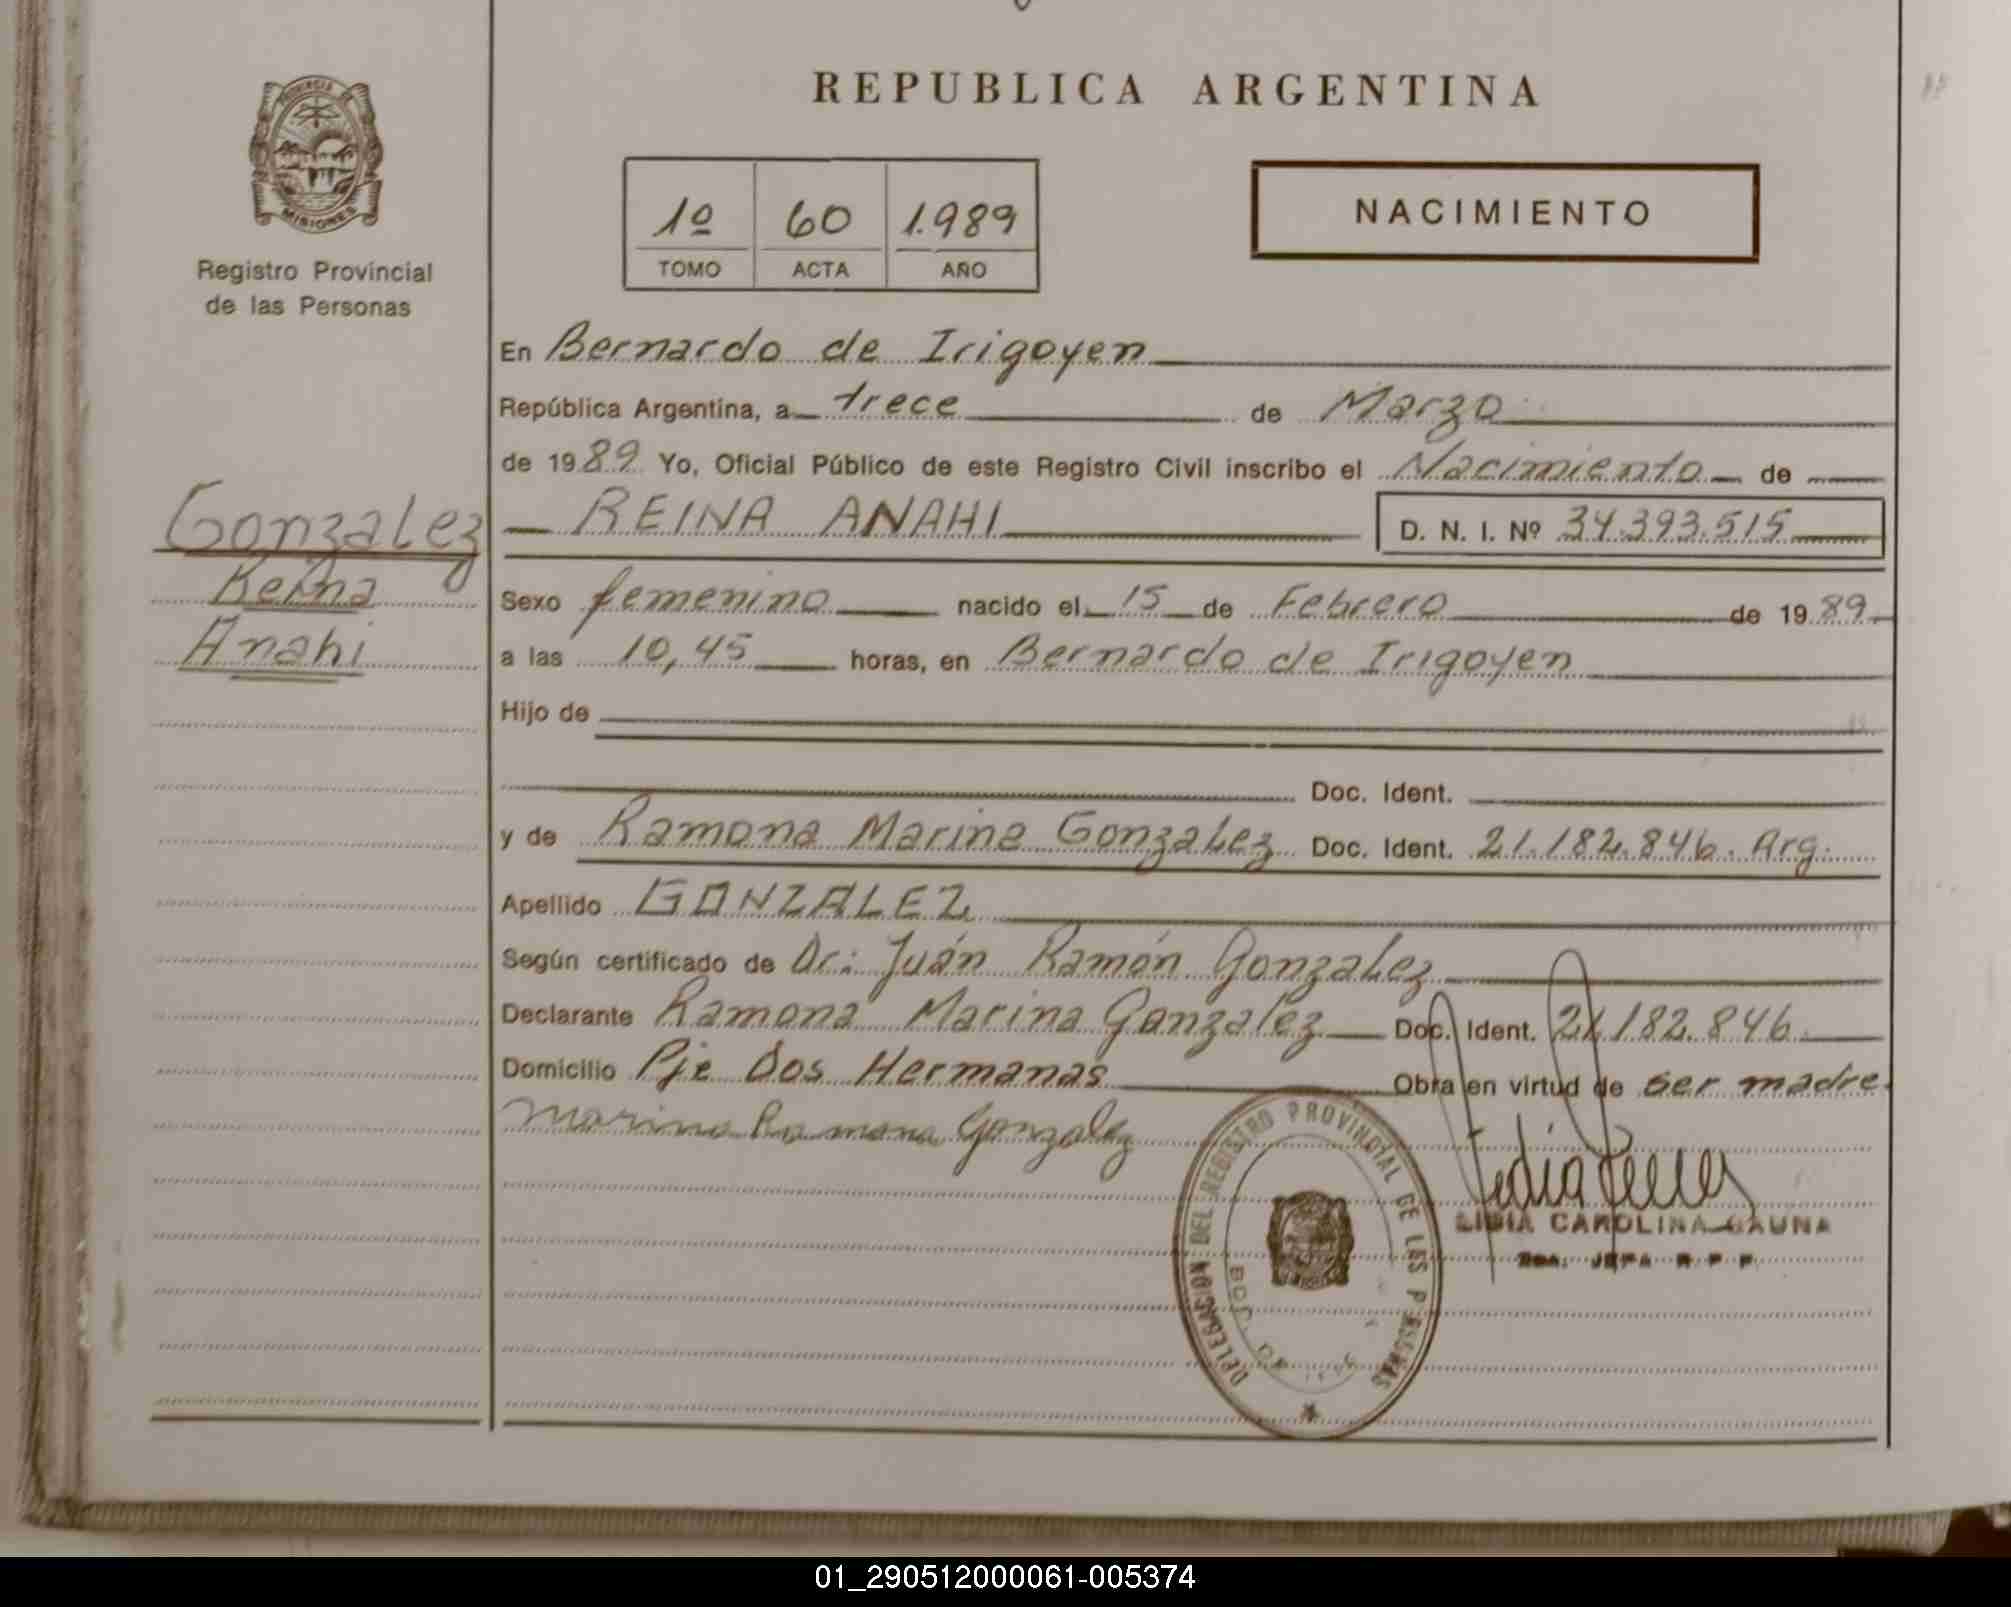 REPUBLICA ARGENTINA
PROVINCIA DE
MISIONES
Registro Provincial
de las Personas
1º 60 1.989
TOMO ACTA AÑO
NACIMIENTO
En Bernardo de Irigoyen
República Argentina, a trece de Marzo
de 1989 Yo, Oficial Público de este Registro Civil inscribo el Nacimiento de
Gonzalez
Reina
Anahi
REINA ANAHI D. N. I. Nº 34.393.515
Sexo femenino nacido el 15 de Febrero de 1989
a las 10,45 horas, en Bernardo de Irigoyen
Hijo de
Doc. Ident.
y de Ramona Marina Gonzalez Doc. Ident. 21.182.846. Arg.
Apellido GONZALEZ
Según certificado de Dr: Juán Ramón Gonzalez
Declarante Ramona Marina Gonzalez Doc. Ident. 21.182.846.
Domicilio Pje Dos Hermanas Obra en virtud de ser madre.
Marina Ramona Gonzalez
DELEGACION DEL REGISTRO PROVINCIAL DE LAS PERSONAS
LIDIA CAROLINA GAUNA
JEFA R P P
01_290512000061-005374